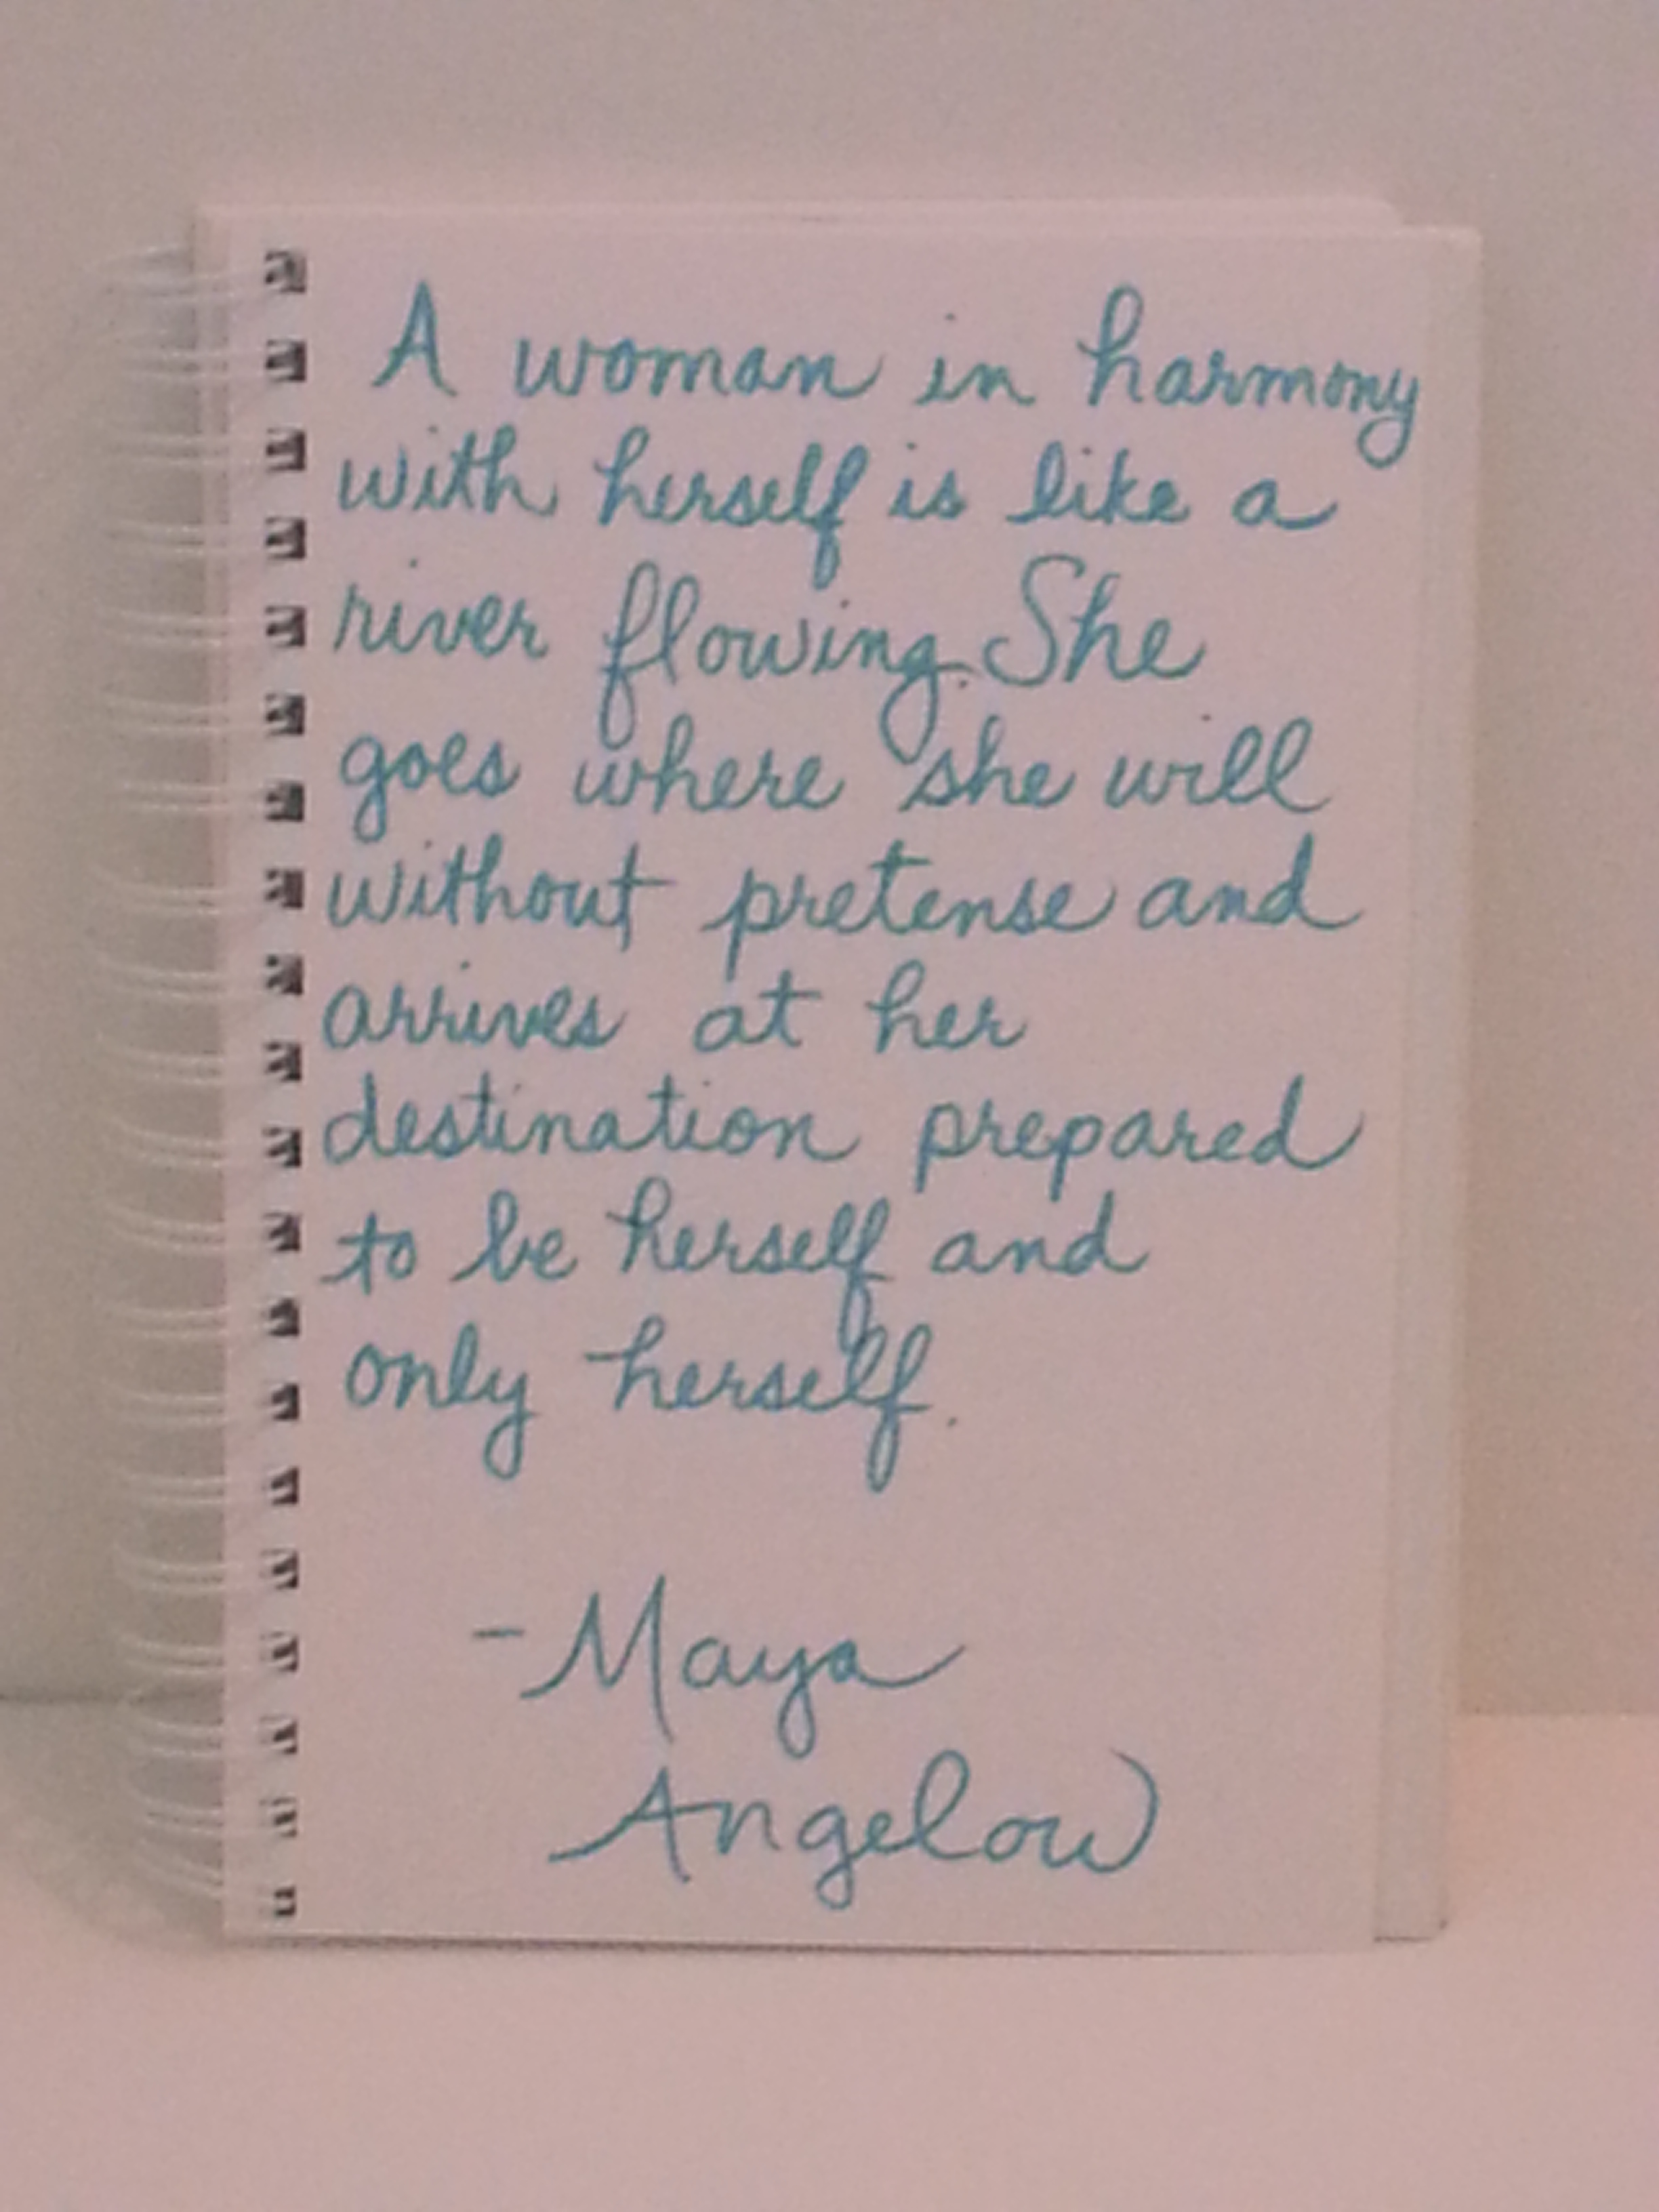 A woman in harmony
with herself is like a
river flowing. She
goes where she will
without pretense and
arrives at her
destination prepared
to be herself and
only herself.
- Maya
Angelou